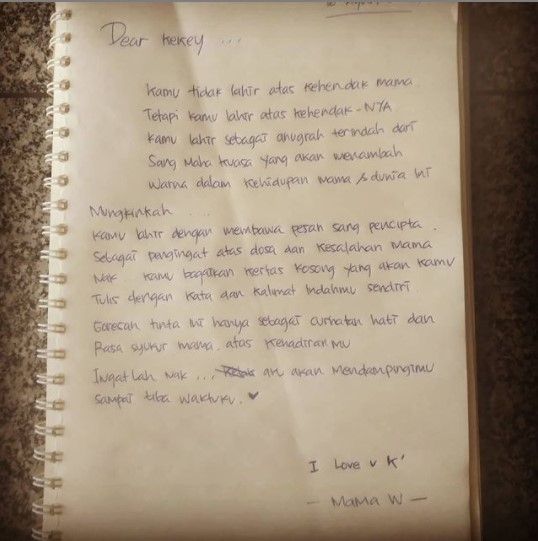 Dear Kekey ...
Kamu tidak lahir atas kehendak mama
Tetapi kamu lahir atas kehendak-NYA
Kamu lahir sebagai anugrah terindah dari
Sang Maha Kuasa yang akan menambah
Warna dalam kehidupan mama & dunia ini
Mungkinkah ....
Kamu lahir dengan membawa pesan sang pencipta.
Sebagai pengingat atas dosa dan kesalahan mama
Nak kamu bagaikan kertas kosong yang akan kamu
Tulis dengan kata dan kalimat indahmu sendiri.
Goresan tinta ini hanya sebagai curhatan hati dan
Rasa syukur mama. atas kehadiranmu
Ingatlah nak ... aku akan mendampingimu
Sampai tiba waktuku. ♥
I Love U K'
- Mama W -